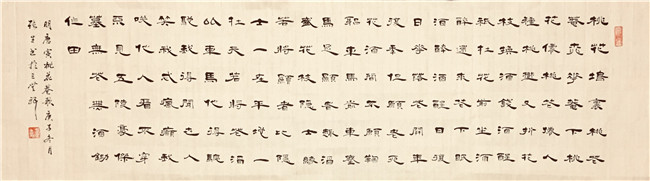 桃花塢裏桃花
庵桃花庵下桃
花仙桃花仙人
種桃樹又摘桃
花換酒錢酒醒
只在花前坐酒
醉還來花下眠
半醒半醉日復
日花落花開年
復年但願老死
花酒間不願鞠
躬車馬前車塵
馬足顯者事酒
盞花枝隱士緣
若將顯者比隱
士一在平地一
在天若將花酒
比車馬他得驅
馳我得閒他人
笑我忒瘋癲我
咲他人看不穿
不見五陵豪傑
墓無花無酒鋤
作田
明唐寅桃花庵歌庚子年月